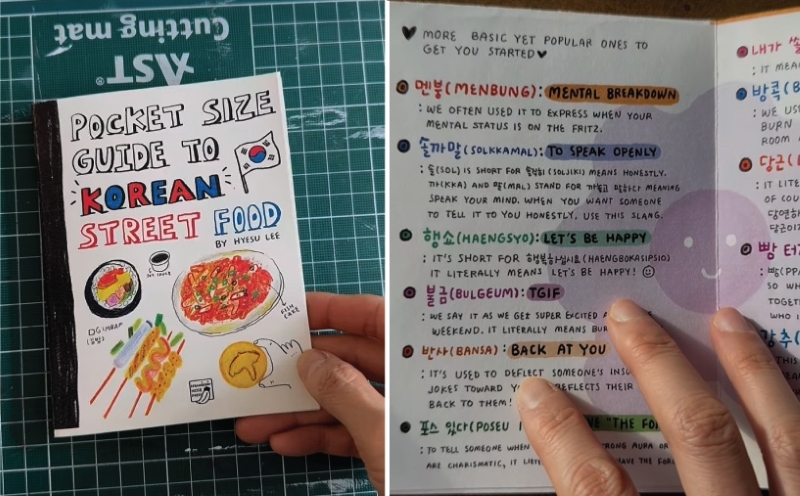 Cutting mat
AST®
POCKET SIZE
GUIDE TO
KOREAN
STREET FOOD
BY HYESU LEE
FISH
CAKE
♥ MORE BASIC YET POPULAR ONES TO
GET YOU STARTED♥
멘붕(MENBUNG): MENTAL BREAKDOWN
: WE OFTEN USED IT TO EXPRESS WHEN YOUR
MENTAL STATUS IS ON THE FRITZ.
솔까말(SOLKKAMAL): TO SPEAK OPENLY
: 솔(SOL) IS SHORT FOR 솔직히(SOLJIKI) MEANS HONESTLY.
까(KKA) AND 말(MAL) STAND FOR 까놓고 말하다 MEANING
SPEAK YOUR MIND. WHEN YOU WANT SOMEONE
TO TELL IT TO YOU HONESTLY. USE THIS SLANG.
행쇼(HAENGSYO): LET'S BE HAPPY
: IT'S SHORT FOR 행복하십시요(HAENGBOKASIPSIO)
IT LITERALLY MEANS LET'S BE HAPPY! ☺
불금(BULGEUM): TGIF
: WE SAY IT AS WE GET SUPER EXCITED
WEEKEND. IT LITERALLY MEANS
반사(BANSA): BACK AT YOU
: IT'S USED TO DEFLECT SOMEONE'S
JOKES TOWARD REFLECTS THEIR
BACK TO THEM!
포스 있다(POSEU "THE
: TO TELL SOMEONE WHEN STRONG AURA OR
ARE CHARISMATIC, IT HAVE THE
내가
: IT
방콕(
: WE
BURN
ROOM
당근(
: IT
OF
빵
: 
SO
TOGET
WHO I
강추(